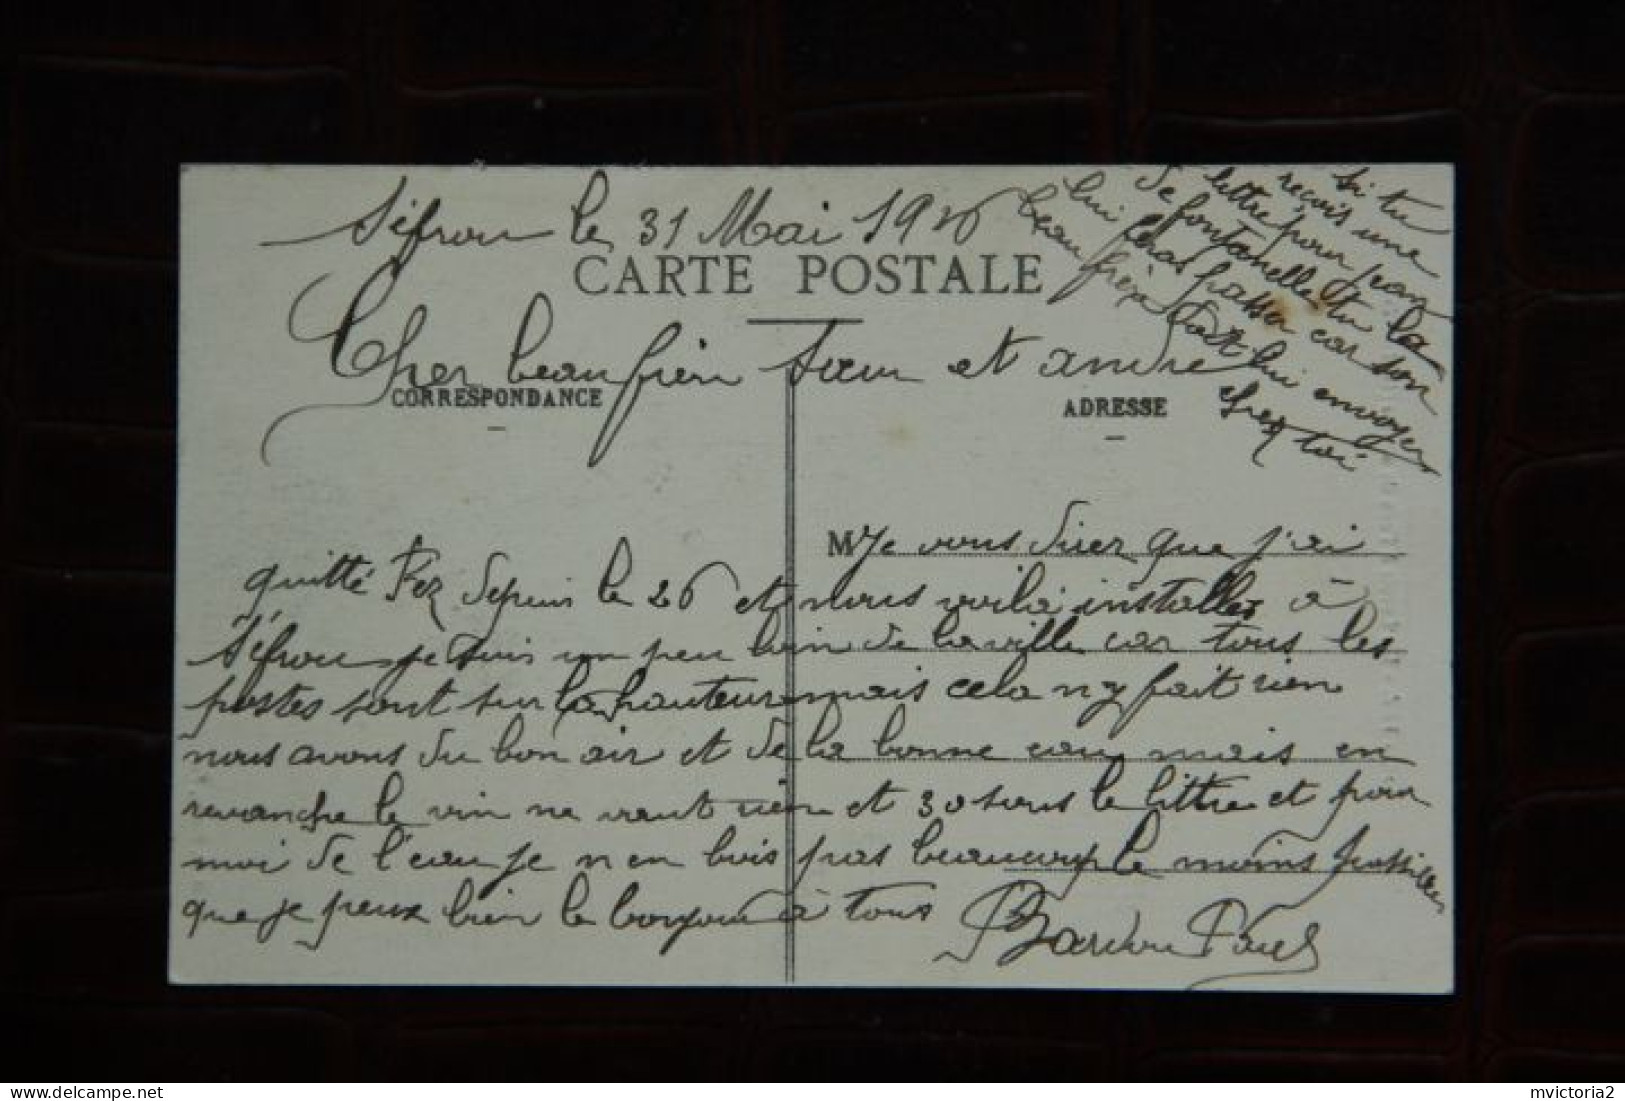 Séfrou le 31 Mai 1926
CARTE POSTALE
Cher beau frère Sœur et andré
CORRESPONDANCE
ADRESSE
si tu
reçois une
littre pour jean
de fontanelle tu la
lui feras passer car son
beau frère doit lui envoyer
chez toi
M Je vous direz que j'ai
quitté Fez depuis le 26 et nous voilà installer à
Séfrou je suis un peu loin de la ville car tous les
postes sont sur la hauteur mais cela n'y fait rien
nous avons du bon air et de la bonne eau mais en
revanche le vin ne vaut rien et 30 sous le littre et pour
moi de l'eau je n'en bois pas beaucoup le moins possible
que je peux bien le bonjour à tous
Paul
mvictoria2